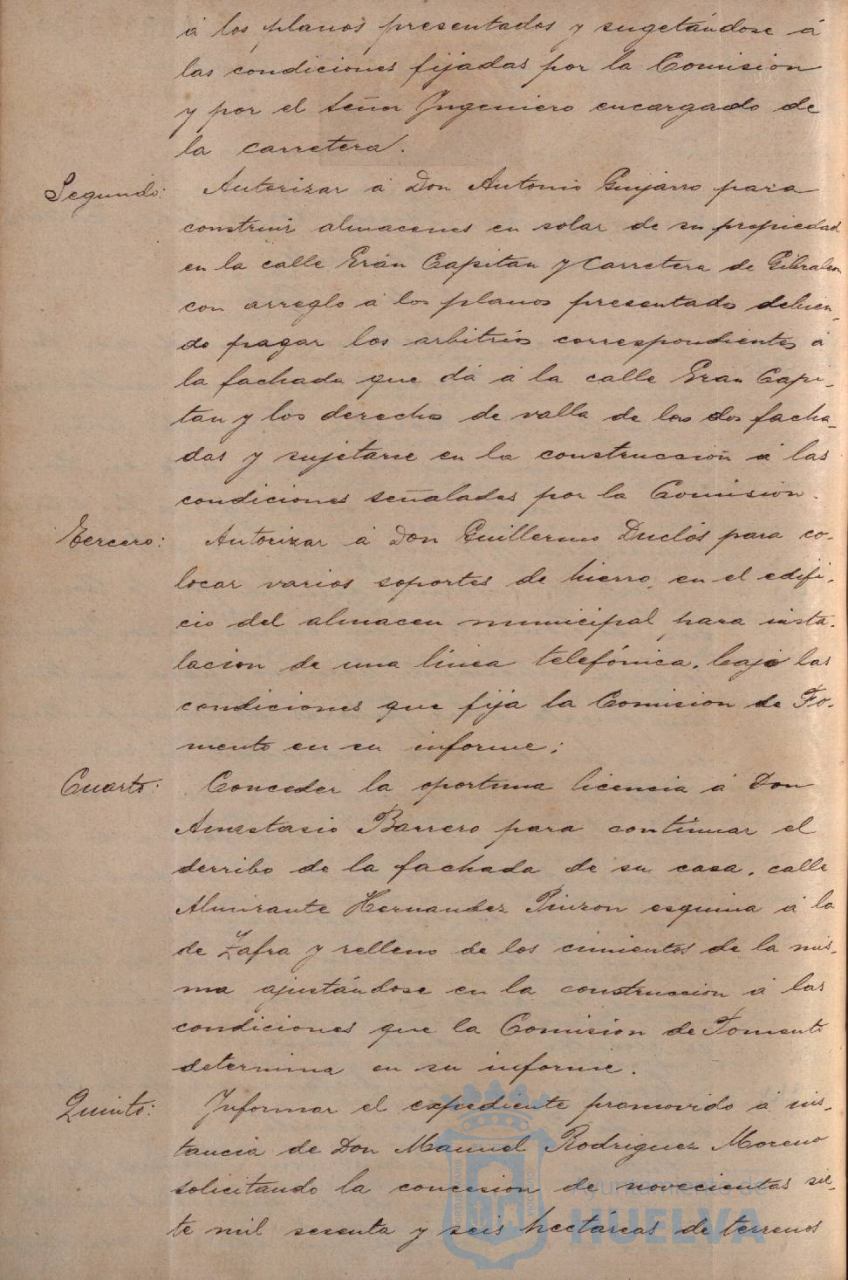 á los planos presentados y sugetándose á
las condiciones fijadas por la Comision
y por el Señor Ingeniero encargado de
la carretera.
Segundo: Autorizar á Don Antonio Guijarro para
construir almacenes en solar de su propiedad
en la calle Gran Capitan y Carretera de Gibraleon
con arreglo á los planos presentados debien-
do pagar los arbitrios correspondientes á
la fachada que dá á la calle Gran Capi-
tan y los derechos de valla de las dos facha-
das y sujetarse en la construcción á las
condiciones señaladas por la Comision.
Tercero: Autorizar á Don Guillermo Duclós para co-
locar varios soportes de hierro, en el edifi-
cio del almacen municipal para insta-
lacion de una línea telefónica, bajo las
condiciones que fija la Comision de Fo-
mento en su informe;
Cuarto: Conceder la oportuna licencia á Don
Anastasio Barrero para continuar el
derribo de la fachada de su casa, calle
Almirante Hernandez Pinzon esquina á la
de Zafra y relleno de los cimientos de la mis-
ma ajustándose en la construccion á las
condiciones que la Comision de Fomento
determina en su informe.
Quinto: Informar el expediente promovido á ins-
tancia de Don Manuel Rodriguez Moreno
solicitando la concesion de novecientas sie-
te mil sesenta y seis hectáreas de terrenos
Ayuntamiento de
HUELVA